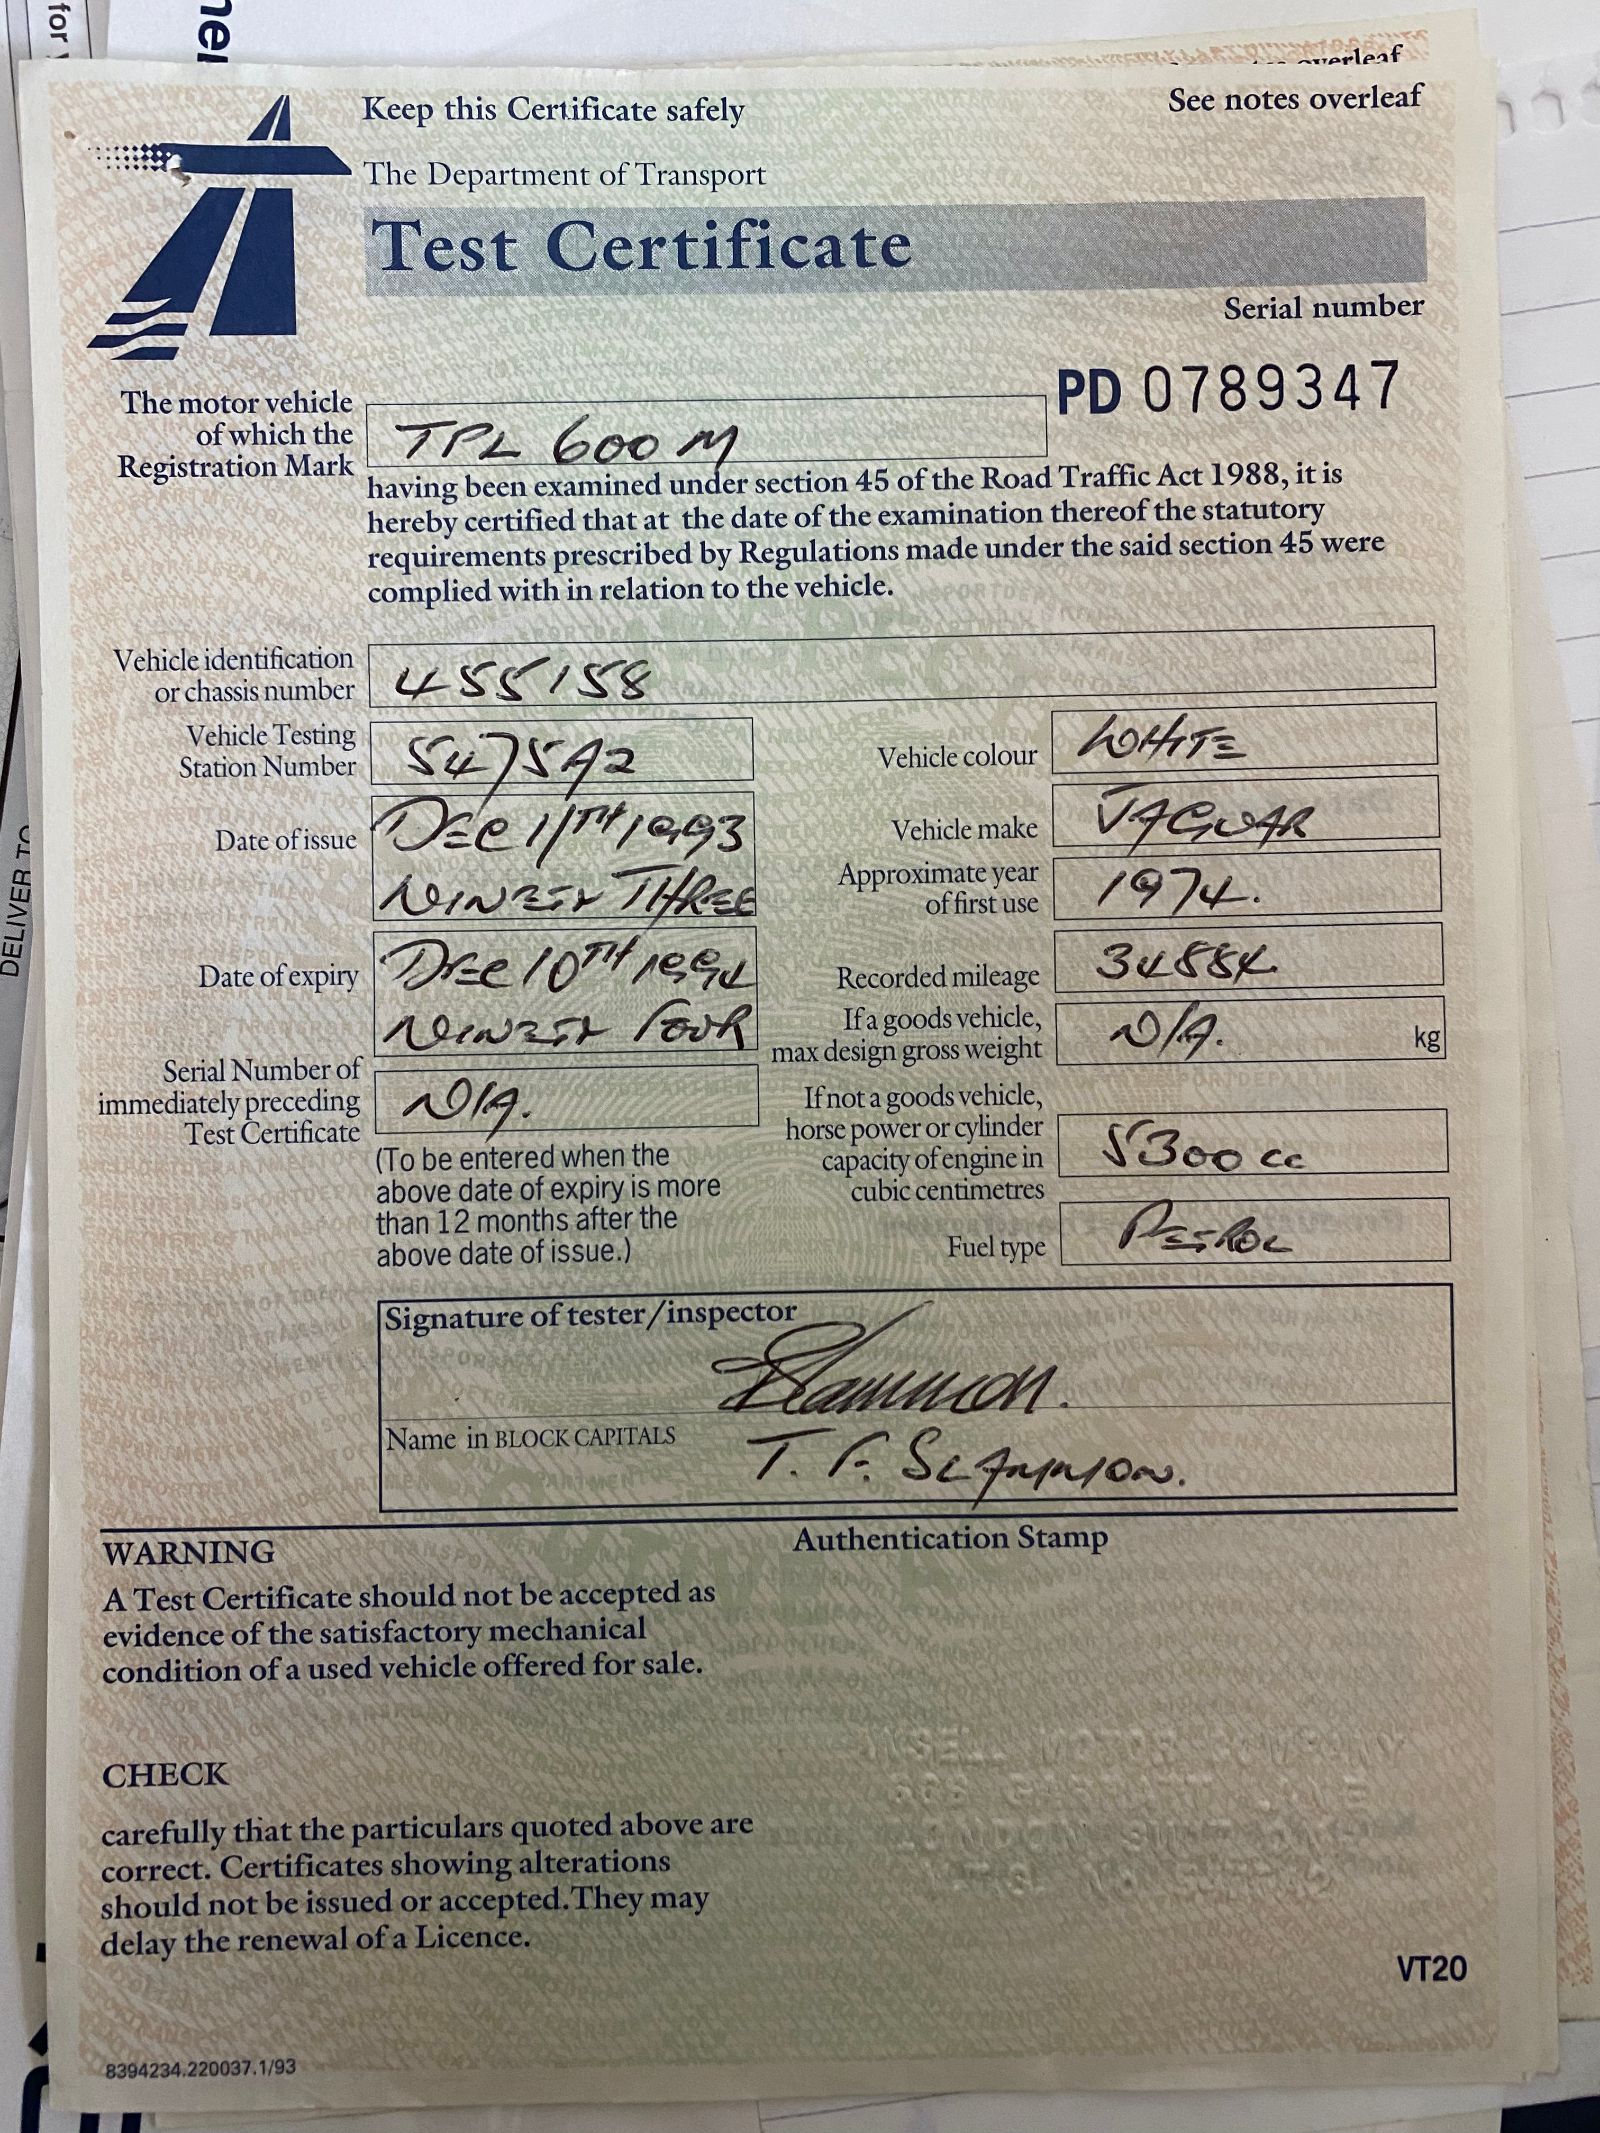 for
ner
overleaf
Keep this Certificate safely
See notes overleaf
The Department of Transport
Test Certificate
Serial number
PD 0789347
The motor vehicle
of which the
Registration Mark
TPL 600 M
having been examined under section 45 of the Road Traffic Act 1988, it is
hereby certified that at the date of the examination thereof the statutory
requirements prescribed by Regulations made under the said section 45 were
complied with in relation to the vehicle.
Vehicle identification
or chassis number
455158
Vehicle Testing
Station Number
5475A2
Vehicle colour
WHITE
Date of issue
DEC 11TH 1993
NINETY THREE
Vehicle make
JAGUAR
Approximate year
of first use
1974.
Date of expiry
DEC 10TH 1994
NINETY FOUR
Recorded mileage
34884
If a goods vehicle,
max design gross weight
N/A.
kg
Serial Number of
immediately preceding
Test Certificate
N/A.
(To be entered when the
above date of expiry is more
than 12 months after the
above date of issue.)
If not a goods vehicle,
horse power or cylinder
capacity of engine in
cubic centimetres
5300 cc
Fuel type
PETROL
Signature of tester/inspector
Name in BLOCK CAPITALS
T. F. SLAMMON.
Authentication Stamp
WARNING
A Test Certificate should not be accepted as
evidence of the satisfactory mechanical
condition of a used vehicle offered for sale.
MOTOR COMPANY
CHECK
carefully that the particulars quoted above are
correct. Certificates showing alterations
should not be issued or accepted. They may
delay the renewal of a Licence.
VT20
8394234.220037.1/93
DELIVER TO